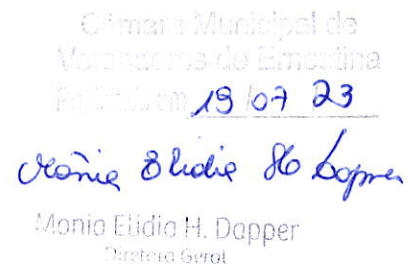 Câmara Municipal de
Vereadores de Ernestina
em 19/07 23
Mônia Elidia H Dapper
Monia Elidia H. Dapper
Diretora Geral